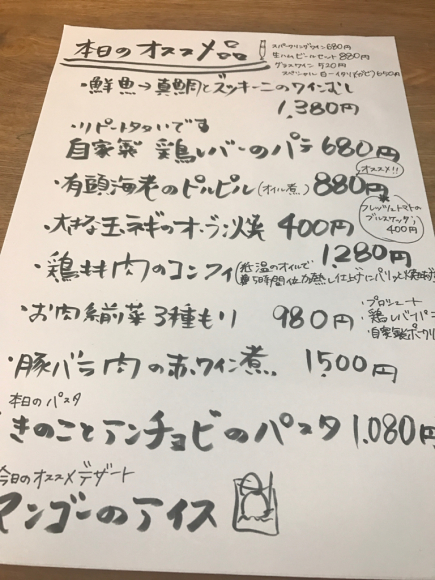 本日のオススメ品
スパークリングワイン 680円
生ハムビールセット 880円
グラスワイン 520円
スペシャル
690円
・鮮魚→真鯛とズッキーニのワインむし
1,380円
・リピートタタいです
自家製 鶏レバーのパテ 680円
オススメ!!
・有頭海老のピルピル(オイル煮) 880円
フレッシュトマトの
ブルスケッタ
400円
・大きな玉ネギのオーブン焼 400円
1280円
・鶏もも肉のコンフィ(低温のオイルで
約5時間位加熱し仕上げにパリッと焼
・お肉系前菜3種もり 980円
・プロシュート
・鶏レバーパテ
・自家製ポークリ
・豚バラ肉の赤ワイン煮 1500円
本日のパスタ
きのことアンチョビのパスタ 1,080円
今日のオススメデザート
マンゴーのアイス